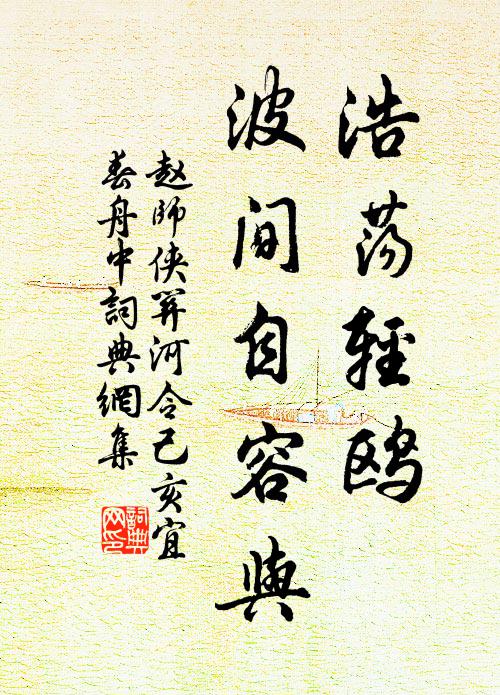 浩荡輕鸥
波间自容與
赵師侠羿河令己亥宜
春舟中詞典網集
詞典
网印